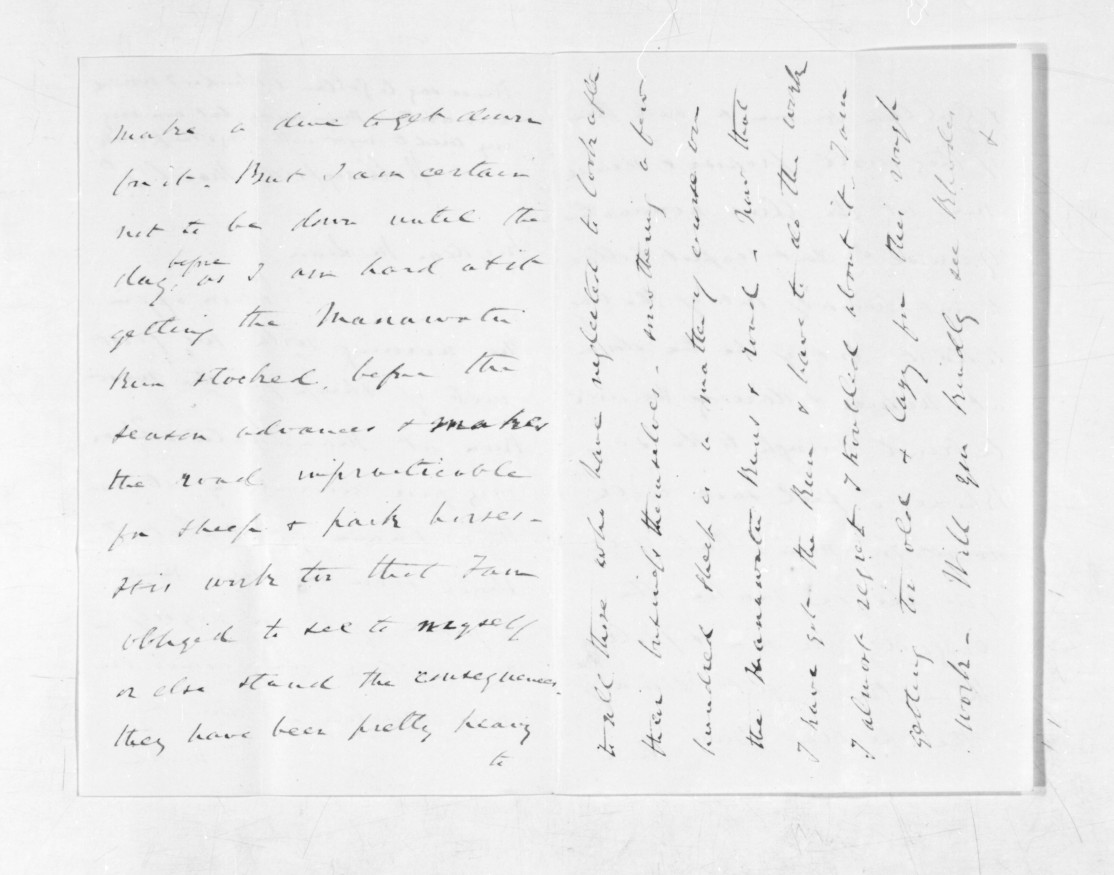 make a dive to get down
for it. But I am certain
not to be down until the
day before as I am hard at it
getting the Manawatu
Run stocked, before the
season advances & makes
the road impracticable
for sheep & pack horses -
It is work too that I am
obliged to see to myself
or else stand the consequences.
they have been pretty heavy
to
to all those who have neglected to look after
their business themselves - smothering a few
hundred sheep is a matter of course on
the Manawatu Runs & road - now that
I have got the Run & have to do the work
I almost regret I troubled about it. I am
getting too old & lazy for this rough
work - Will you kindly see Rhodes
&